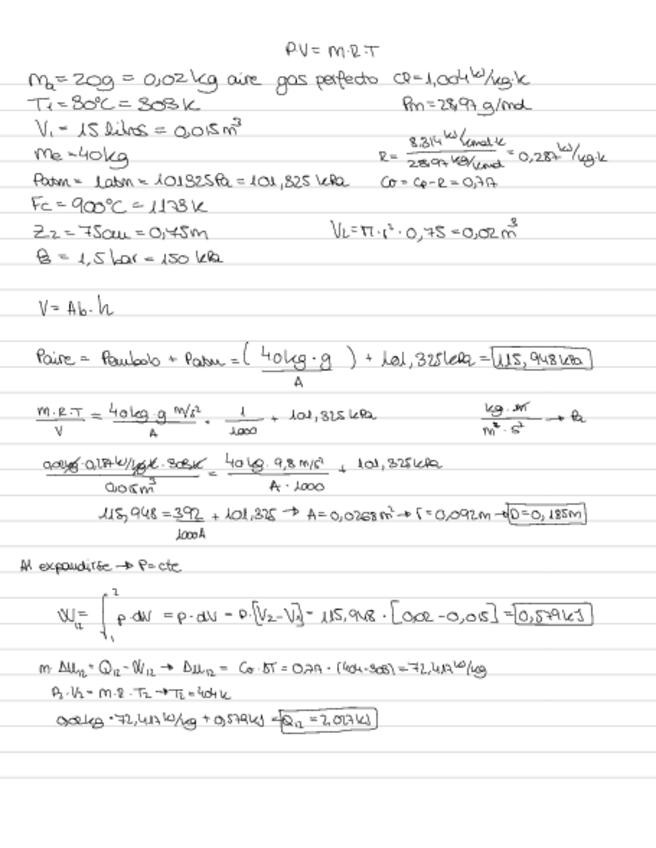 P.V = m.R.T
ma = 20g = 0,02 kg aire gas perfecto Cp = 1,004 kJ/kg·k
T1 = 30°C = 303 K Pm = 28,97 g/mol
V1 = 15 litros = 0,015 m³
me = 40 kg R = 8.314 kJ/kmol·k / 28,97 kg/kmol = 0,287 kJ/kg·k
Patm = 1 atm = 101325 Pa = 101,325 kPa Cv = Cp - R = 0,717
Fc = 900°C = 1173 K
Z2 = 75cm = 0,75m V2 = π·r²·0,75 = 0,02 m³
P3 = 1,5 bar = 150 kPa
V = Ab·h
Paire = Pembolo + Patm = (40kg·g / A) + 101,325 kPa = 115,948 kPa
m.R.T / V = 40kg·g m/s² / A · 1/1000 + 101,325 kPa kg·m / m²·s² → Pa
0,02kg·0,287 kJ/kg·K·303K / 0,015m³ = 40 kg·9,8 m/s² / A·1000 + 101,325 kPa
115,948 = 392 / 1000A + 101,325 → A = 0,0268 m² → r = 0,092m → D = 0,185m
Al expandirse → P = cte
W12 = ∫₁² p·dV = p·dV = P·[V2 - V1] = 115,948·[0,02 - 0,015] = 0,579 kJ
m·Δu12 = Q12 - W12 → Δu12 = Cv·ΔT = 0,717·(404-303) = 72,417 kJ/kg
P2·V2 = m·R·T2 → T2 = 404 K
0,02kg·72,417 kJ/kg + 0,579 kJ = Q12 = 2,027 kJ